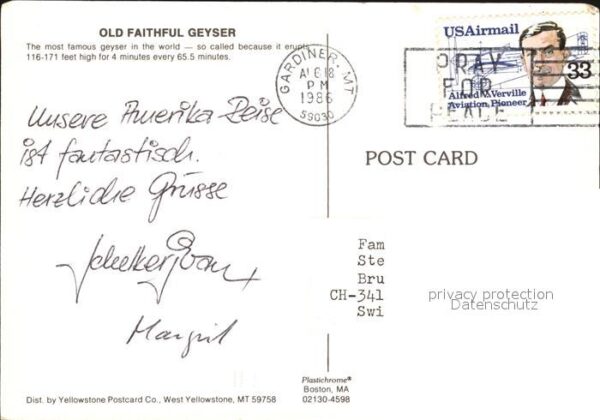 OLD FAITHFUL GEYSER
The most famous geyser in the world — so called because it erupts
116-171 feet high for 4 minutes every 65.5 minutes.
GARDINER, MT
AUG 18
PM
1986
59030
USAirmail
33
Alfred V. Verville
Aviation Pioneer
PRAY
FOR
PEACE
Unsere Amerika-Reise
ist fantastisch.
Herzliche Grüsse
Margrit
POST CARD
Fam
Ste
Bru
CH-341
Swi
privacy protection
Datenschutz
Plastichrome®
Boston, MA
02130-4598
Dist. by Yellowstone Postcard Co., West Yellowstone, MT 59758